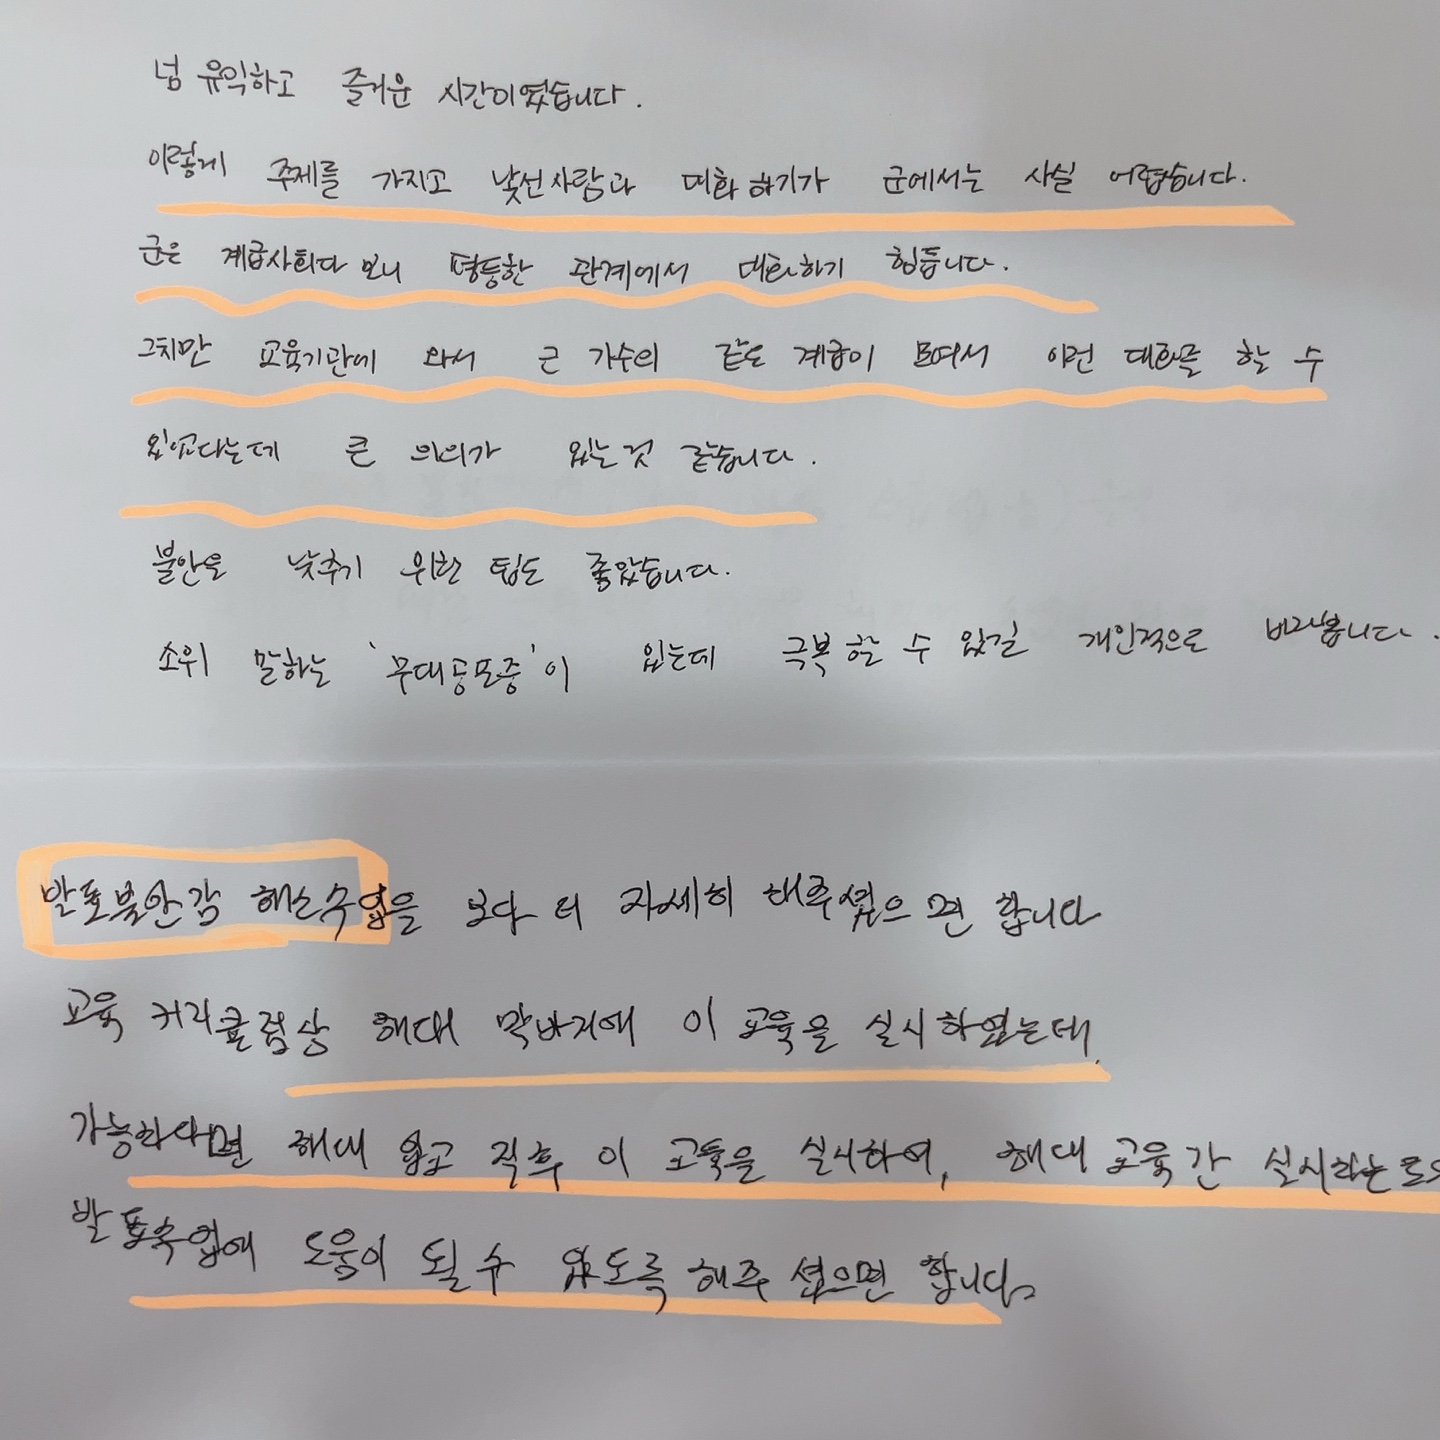 넘 유익하고 즐거운 시간이였습니다.
이렇게 주제를 가지고 낯선사람과 대화하기가 군에서는 사실 어렵습니다.
군은 계급사회다 보니 평등한 관계에서 대화하기 힘듭니다.
그치만 교육기관에 와서 는 다수의 같은 계급이 모여서 이런 대화를 할 수
있었다는데 큰 의의가 있는것 같습니다.
불안을 낮추기 위한 팁도 좋았습니다.
소위 말하는 '무대공포증'이 있는데 극복할 수 있길 개인적으로 바래봅니다.
발표불안감 해소수업을 보다 더 자세히 해주셨으면 합니다
교육 커리큘럼상 해대 막바지에 이 교육을 실시하였는데,
가능하다면 해대 입교 직후 이 교육을 실시하여, 해대 교육간 실시하는
발표수업에 도움이 될 수 있도록 해주셨으면 합니다.